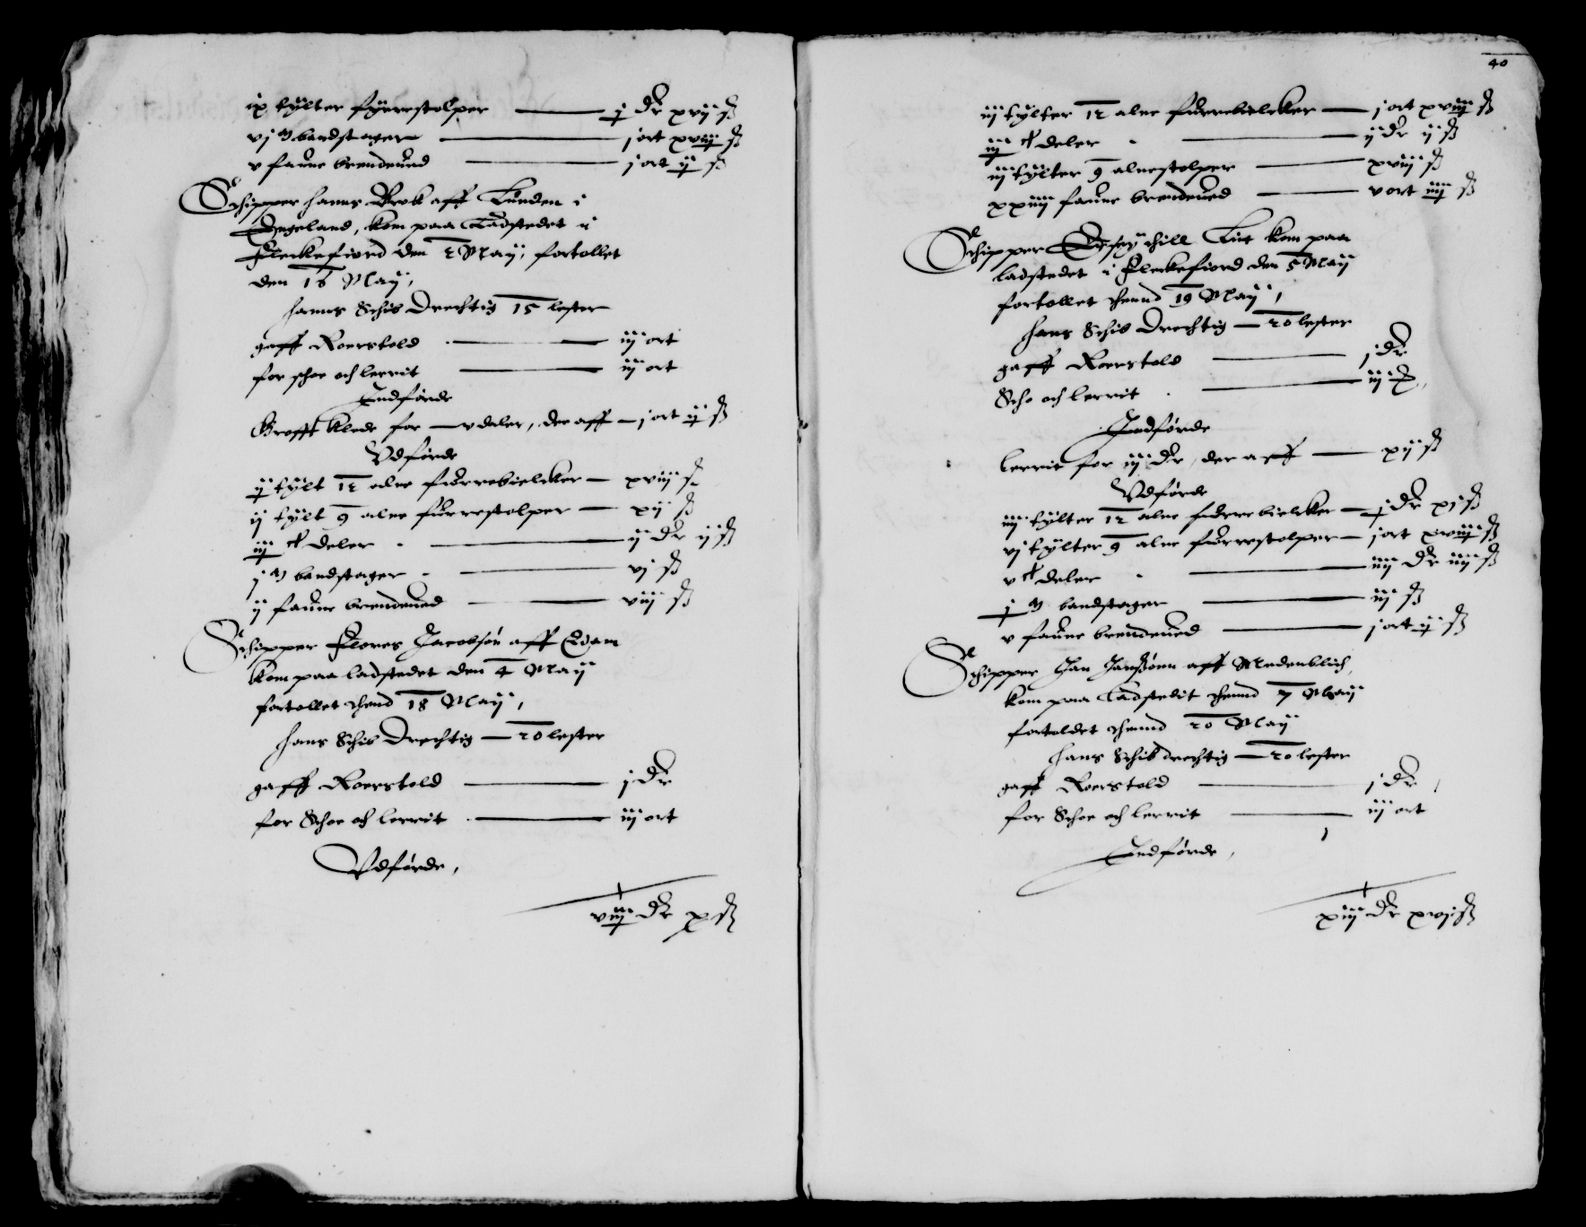 ix tylter fyrrestolper — j Dr xvij ß
vj m bandstager — j ort xviij ß
v faune brendeued — j ort ij ß
Schipper hanns Brok aff Lunden i
Engeland, kom paa Ladstedet i
Fleckefiord den 2 May, fortollet
den 16 May,
hanns Schib Drechtig 15 lester
gaff Roerstold — iij ort
for schoe och lerrit — iij ort
Indførde
Grofft klede for — v daler, der aff — j ort ij ß
Vdførde
ij tylt 12 alne furrebielcker — xviij ß
ij tylt 9 alne furrestolper — xij ß
iij c deler — ij Dr ij ß
j m bandstager — vj ß
ij faune brendeued — viij ß
Schipper Flores Jacobsøn aff Edam
kom paa ladstedet den 4 May
fortollet thend 18 May,
hans Schib Drechtig — 20 lester
gaff Roerstold — j Dr
for Schoe och lerrit — iij ort
Vdførde,
viij Dr x ß
40
iij tylter 12 alne furrebielcker — j ort xviij ß
iij c deler — ij Dr ij ß
iij tylter 9 alnestolper — xviij ß
xxiiij faune brendeued — v ort iiij ß
Schipper kom paa
ladstedet i Fleckefiord den 5 May
fortollet thennd 19 May,
hans Schib Drechtig — 20 lester
gaff Roerstold — j Dr
Scho och lerrit — iij
Indførde
lerrit for iij Dr, der aff — xij ß
Vdførde
iiij tylter 12 alne furrebielcker — j Dr xj ß
vj tylter 9 alne furrestolper — j ort xviij ß
v c deler — iiij Dr iiij ß
j m bandstager — iij ß
v faune brendeued — j ort ij ß
Schipper Jan Janßøen aff Medenblich,
kom paa Ladstedit thennd 7 May
fortoldet thennd 20 May
hans Schib drechtig — 20 lester
gaff Roerstold — j Dr,
for Schoe och lerrit — iij ort
Indførde,
xiij Dr xvj ß